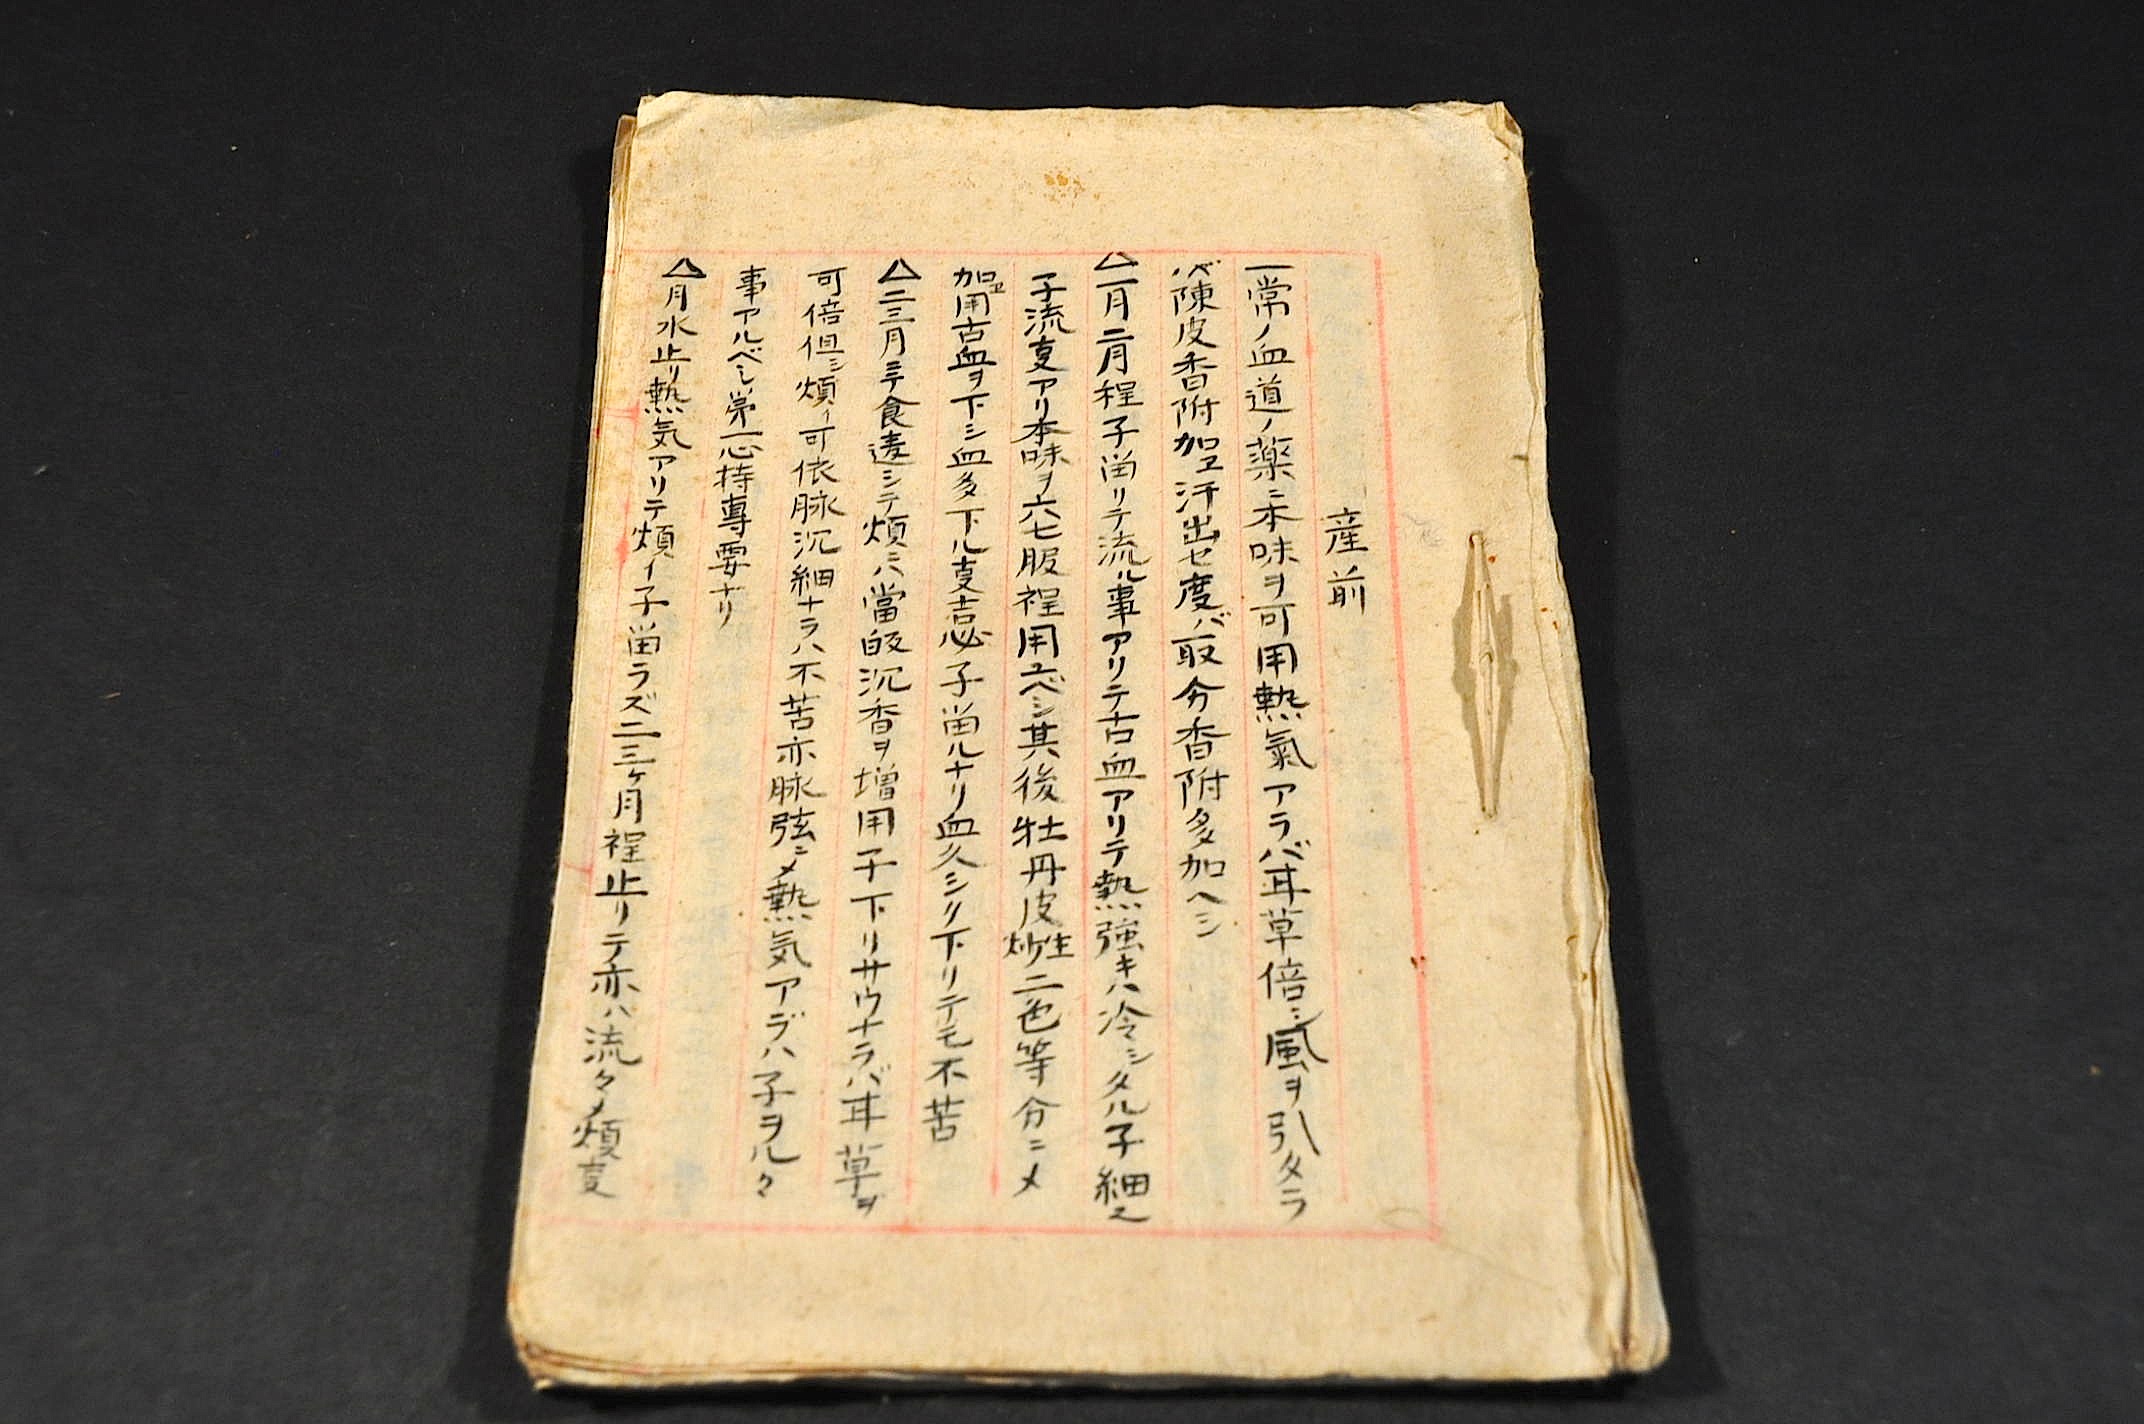 産前
一常ノ血道ノ薬ニ本味ヲ可用熱氣アラバ甘草倍シ風ヲ引タラ
バ陳皮香附加ヱ汗出セ度バ取分香附多加ヘシ
△一月二月程子畄リテ流ル事アリテ古血アリテ熱強キハ冷シタル子細ヱ
子流支アリ本味ヲ六七服程用ユベシ其後牡丹皮炒生二色等分ニメ
加ヱ用古血ヲ下シ血多下ル支吉必子畄ルナリ血久シク下リテモ不苦
△二三月ニテ食違シテ煩ニハ當皈沉香ヲ増用子下リサウナラバ甘草ヲ
可倍但シ煩ニ可依脉沉細ナラハ不苦亦脉弦ニメ熱気アラハ子ヲルヽ
事アルベシ第一心持專要ナリ
△月水止リ熱気アリテ煩イ子畄ラズ二三ヶ月程止リテ亦ハ流々メ煩支